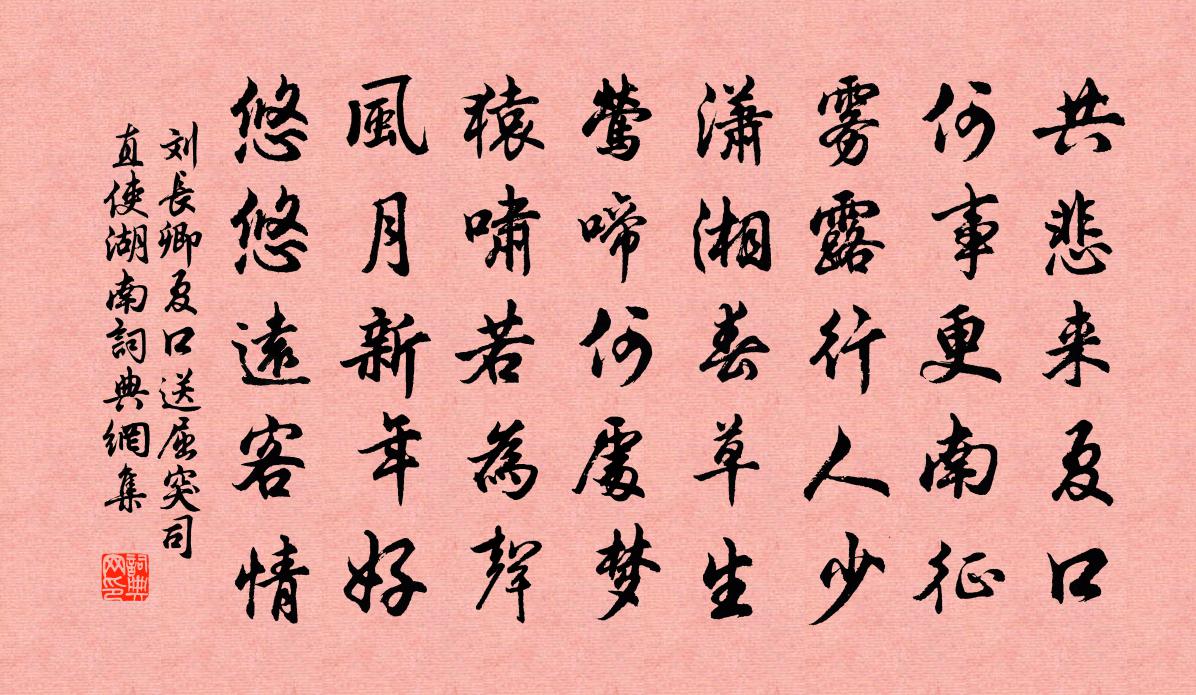 共悲来夏口
何事更南征
雾露行人少
潇湘春草生
莺啼何處梦
猿啸若為聲
風月新年好
悠悠遠客情
刘長卿夏口送屈突司
直使湖南詞典網集
詞典網印